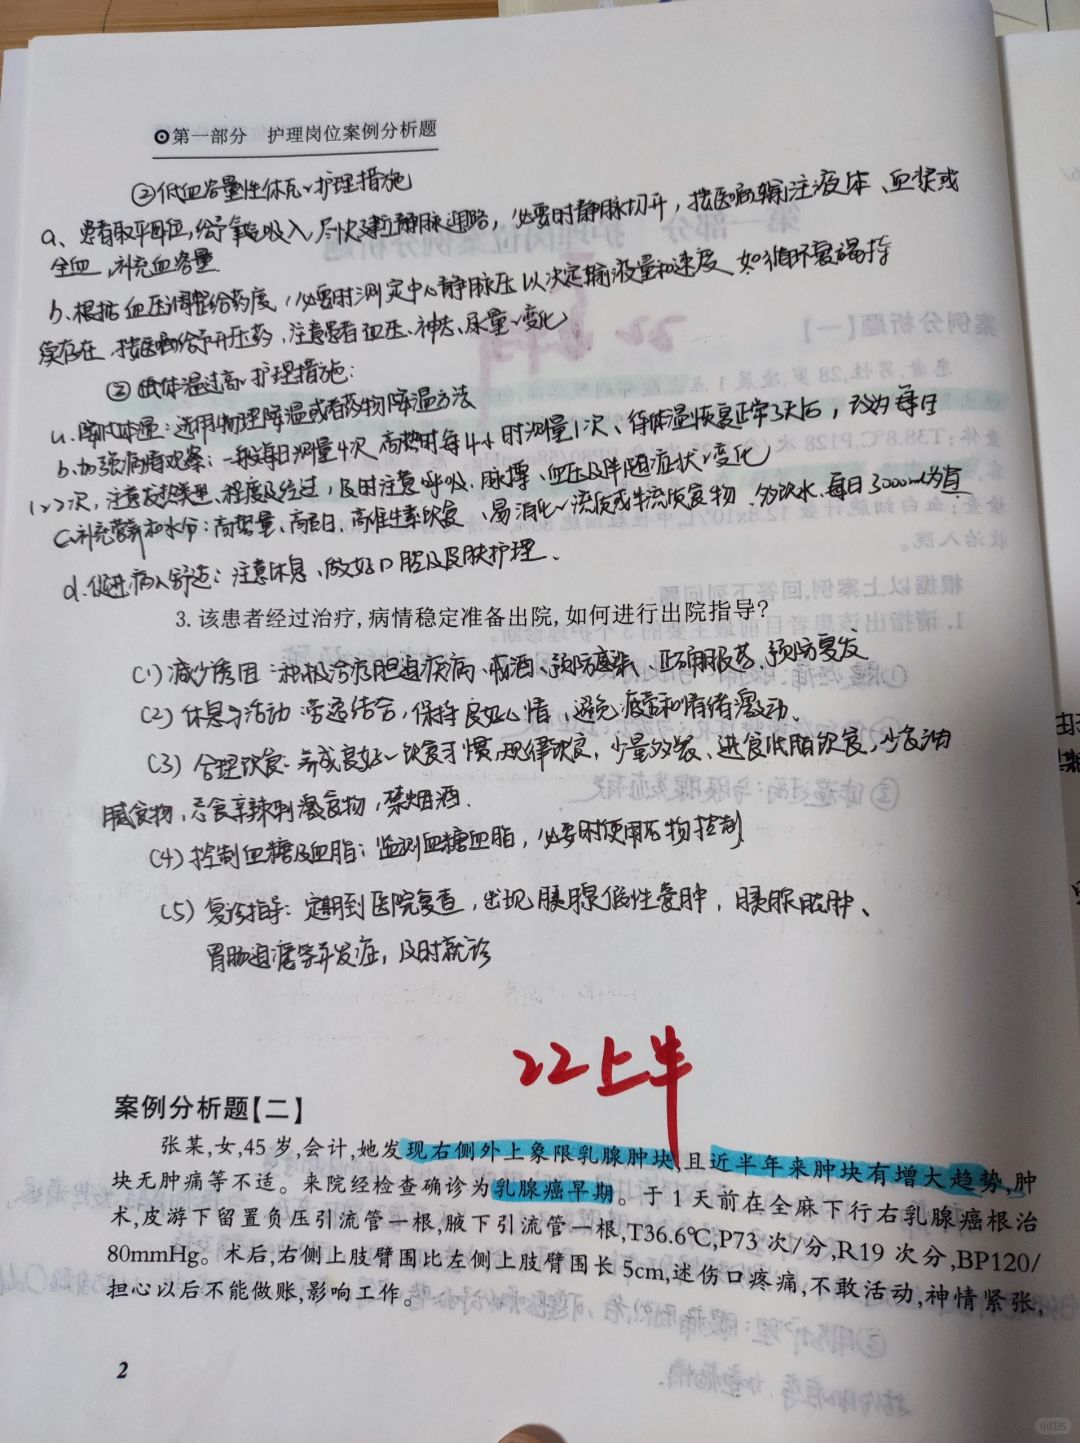 第一部分 护理岗位案例分析题
②低血容量性休克、护理措施
a、患者取平卧位,给予氧气吸入,尽快建立静脉通路,必要时静脉切开,按医嘱输注液体、血浆或
全血,补充血容量
b、根据血压调整给药速度,必要时测定中心静脉压以决定输液量和速度 如循环衰竭持
续存在,按医嘱给予升压药,注意患者血压、神志、尿量、变化
③ 体温过高、护理措施:
a.降低体温:选用物理降温或者药物降温方法
b.加强病情观察:一般每日测量4次 高热时每4小时测量1次、待体温恢复正常3天后,改为每日
1~2次,注意发热类型、程度及经过,及时注意呼吸、脉搏、血压及伴随症状、变化
c.补充营养和水分:高热量、高蛋白、高维生素饮食、易消化、流质或半流质食物、多饮水、每日3000ml为宜
d.促进病人舒适:注意休息、做好口腔及皮肤护理.
3.该患者经过治疗,病情稳定准备出院,如何进行出院指导?
(1)减少诱因:积极治疗胆道疾病、戒酒、预防感染、正确用药、预防复发
(2)休息与活动 劳逸结合,保持良好心情、避免疲劳和情绪激动.
(3)合理饮食:养成良好、饮食习惯,规律饮食,少量多餐、进食低脂饮食,少食油
腻食物,忌食辛辣刺激食物,禁烟酒.
(4)控制血糖及血脂:监测血糖血脂,必要时使用药物控制
(5)复诊指导:定期到医院复查,出现胰腺假性囊肿,胰腺脓肿、
胃肠道瘘等并发症,及时就诊
22上半
案例分析题【二】
张某,女,45岁,会计,她发现右侧外上象限乳腺肿块,且近半年来肿块有增大趋势,肿
块无肿痛等不适。来院经检查确诊为乳腺癌早期。于1天前在全麻下行右乳腺癌根治
术,皮游下留置负压引流管一根,腋下引流管一根,T36.6℃,P73次/分,R19次分,BP120/
80mmHg。术后,右侧上肢臂围比左侧上肢臂围长5cm,述伤口疼痛,不敢活动,神情紧张,
担心以后不能做账,影响工作。
2
小红书